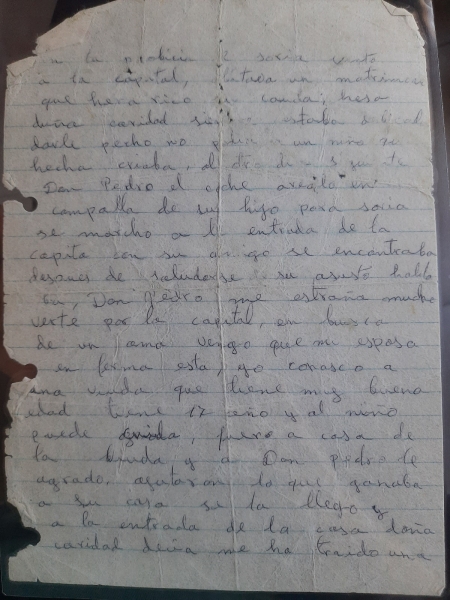 la probincia de soria junto
a la capital, un matrimonio
que hera rico en canda, hesa
doña caridad estaba
darle pecho no a un niño su
hecha criada, al dia
Don Pedro el coche areglo
campalla de su hijo para soria
se marcho a la entrada de la
capita con su amigo se encontraba
despues de saludarse su asusto hablo
Don Pedro me estraña mucho
verte por la capital, en busca
de un ama vengo que mi esposa
en ferma esta, yo conosco a
una viuda que tiene muy buena
edad tiene 17 año y al niño
puede , fuero a casa de
la biuda y a Don pedro le
agrado, ajutaron lo que ganaba
a su casa se la llego y
a la entrada de la casa doña
caridad decia me ha traido una